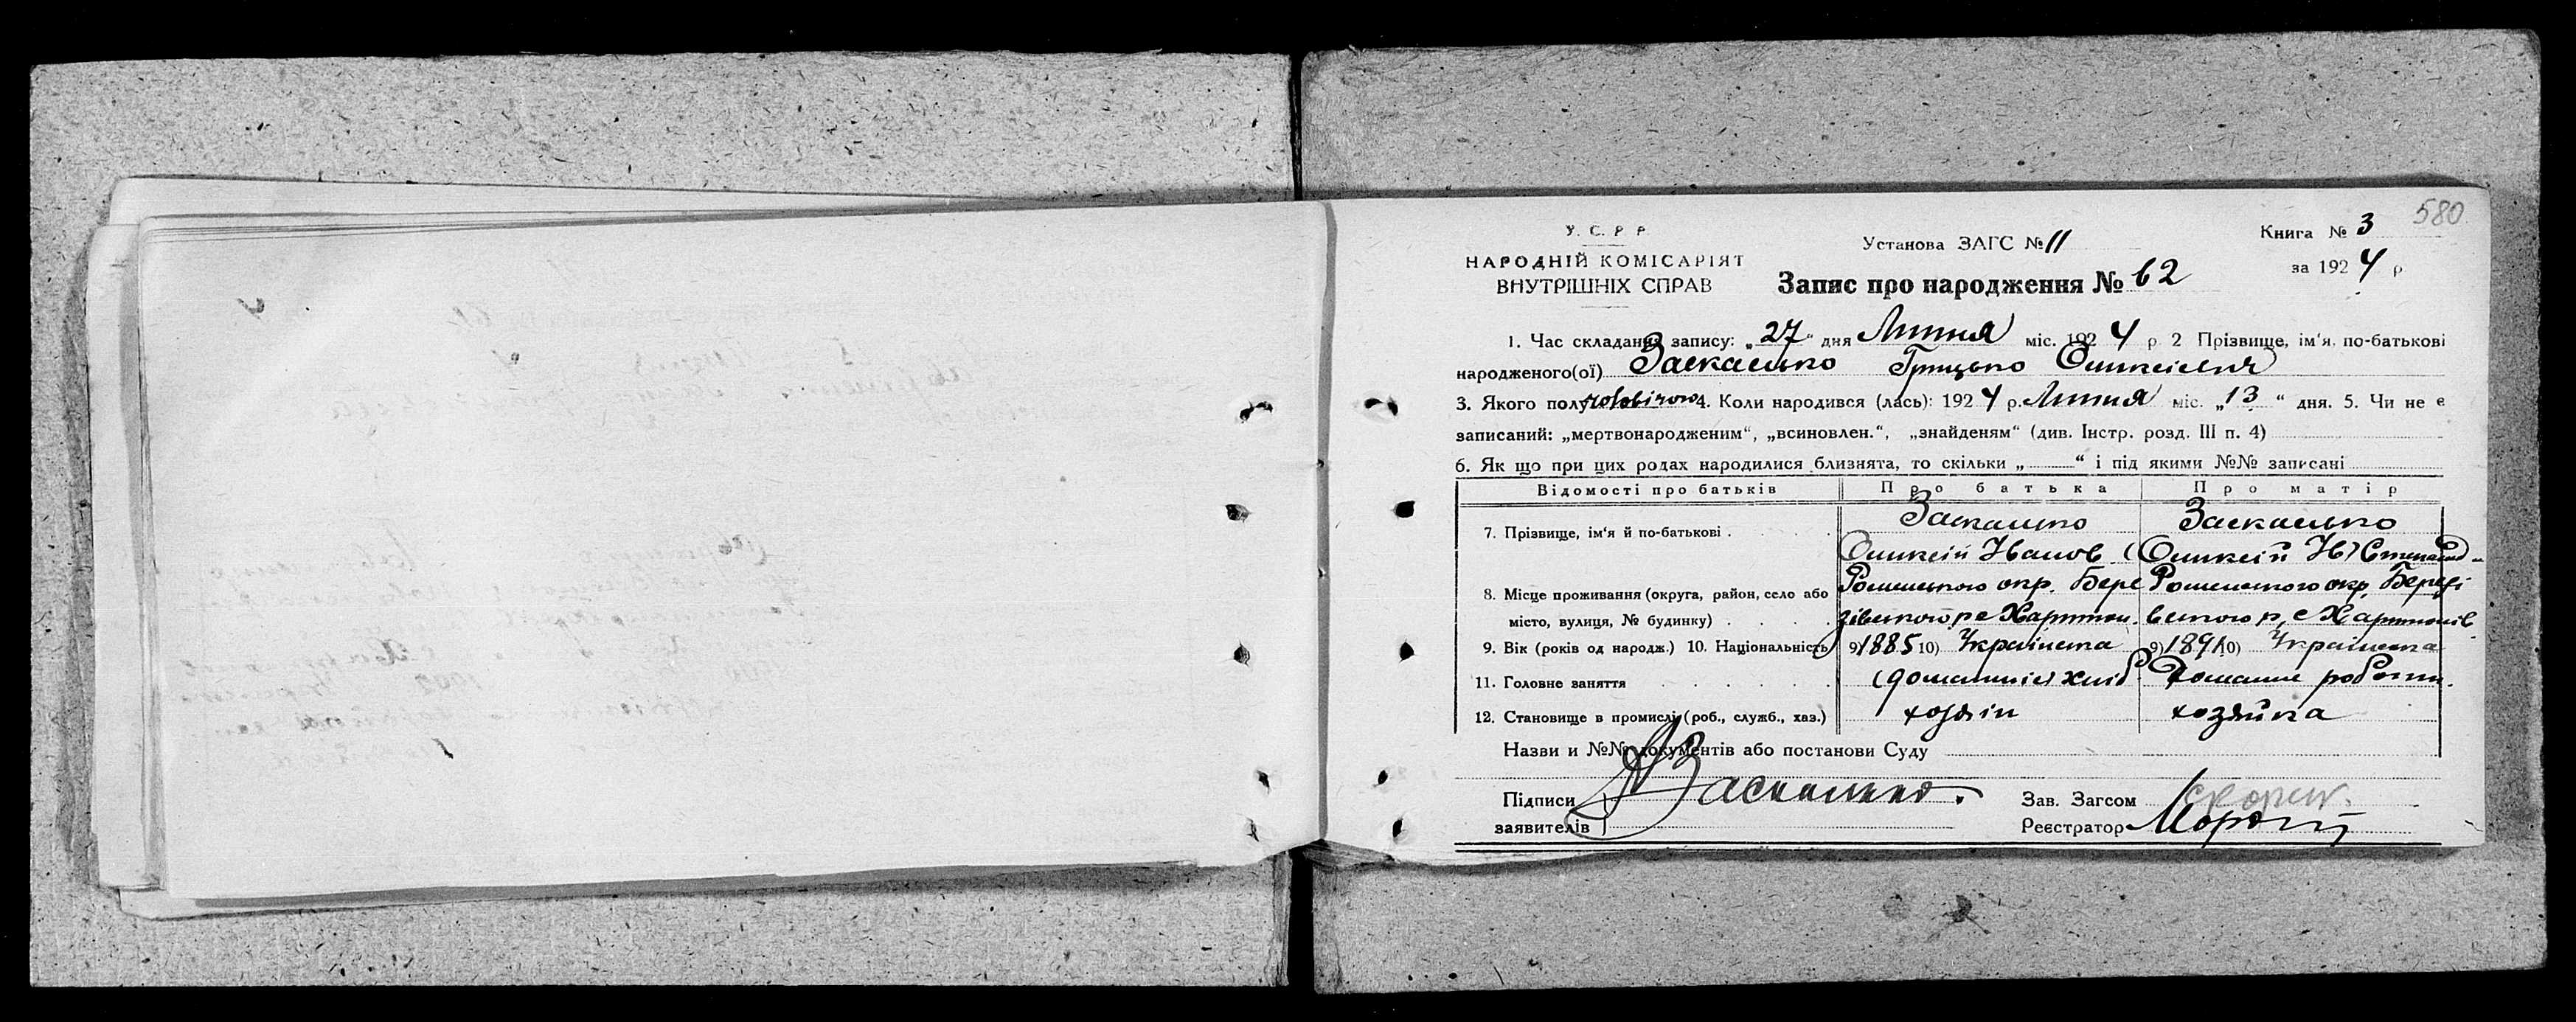 580
У. С. Р Р.
НАРОДНІЙ КОМІСАРІЯТ
ВНУТРІШНІХ СПРАВ
Установа ЗАГС № 11
Книга № 3
за 1924 р.
Запис про народження № 62
1. Час складання запису: „27“ дня Липня міс. 1924 р. 2 Прізвище, ім'я, по-батькові
народженого(ої) Заскалько Грицько Олик
3. Якого полу чоловічого 4. Коли народився (лась): 1924 р. Липня міс. „13“ дня. 5. Чи не є
записаний: „мертвонародженим“, „всиновлен.“, „знайденям“ (див. Інстр. розд. III п. 4)
6. Як що при цих родах народилися близнята, то скільки „ “ і під якими №№ записані
Відомості про батьків Про батька Про матір
7. Прізвище, ім'я й по-батькові Заскалько Заскалько
Оликсій Іванов. (Оликсій Ів)
8. Місце проживання (округа, район, село або Роменського окр. Бере Роменського окр, Березі
місто, вулиця, № будинку) зівського р с Хартон. вського р, с Хартонів
9. Вік (років од народж.) 10. Національність 9) 1885 10) Українська 9) 1891 10) Українська
11. Головне заняття хліб Домашне робот
12. Становище в промислі (роб., служб., хаз.) хозяін хозяйка
Назви и №№ документів або постанови Суду
Підписи заявителів Заскалько.
Зав. Загсом
Реєстратор